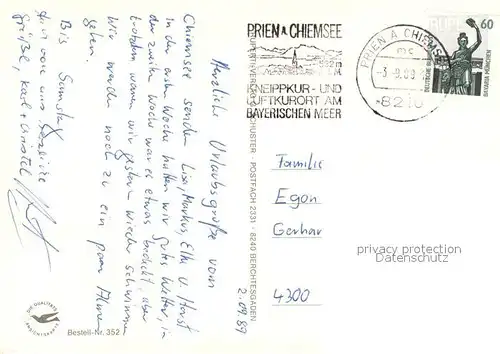 Herzliche Urlaubsgrüße vom
Chiemsee senden Lisa, Markus, Elke u. Horst
In der ersten Woche hatten wir gutes Wetter, in
der zweiten Woche war es etwas bedeckt, aber
trotzdem waren wir gestern wieder schwimmen
Wir werden noch zu ein paar Almen
gehen.
Bis Samstag
Grüße,
2.09.89
PRIEN A. CHIEMSEE
KNEIPPKUR- UND
LUFTKURORT AM
BAYERISCHEN MEER
PRIEN A CHIEMSEE
8210
60
DEUTSCHE BUNDESPOST
BAVARIA MÜNCHEN
Familie
Egon
Gerhar
4300
privacy protection
Datenschutz
POSTFACH 2331 · 8240 BERCHTESGADEN
DIE QUALITÄTS
ANSICHTSKARTE
Bestell-Nr. 352